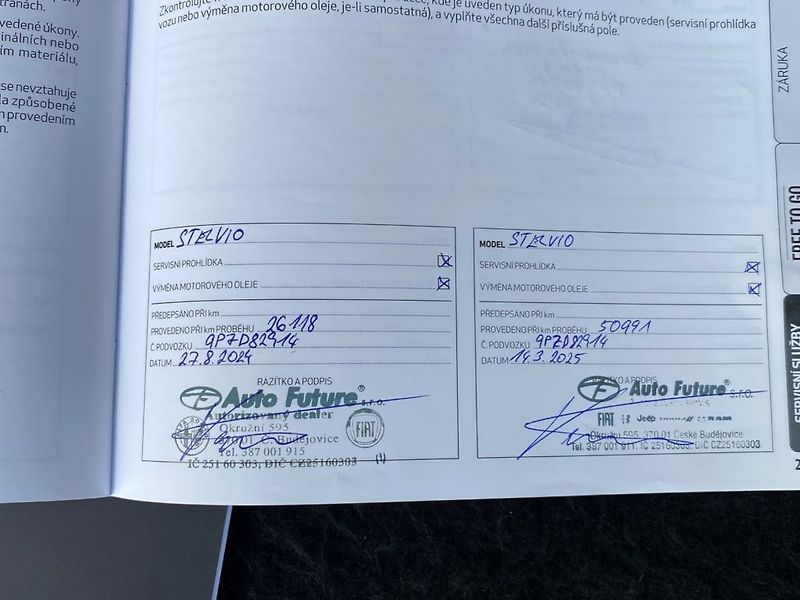 tranách.
vedené úkony.
ginálních nebo
ím materiálu,
se nevztahuje
la způsobené
provedením
m.
Zkontrolujte
kde je uveden typ úkonu, který má být proveden (servisní prohlídka
vozu nebo výměna motorového oleje, je-li samostatná), a vyplňte všechna další příslušná pole.
MODEL STELVIO
SERVISNÍ PROHLÍDKA
VÝMĚNA MOTOROVÉHO OLEJE
PŘEDEPSÁNO PŘI km
PROVEDENO PŘI km PRŮBĚHU 26118
Č. PODVOZKU 9P7D82914
DATUM 27.8.2024
RAZÍTKO A PODPIS
Auto Future® s.r.o.
Autorizovaný dealer
Okružní 595
37001 Č. Budějovice
Tel. 387 001 915
IČ 251 60 303, DIČ CZ25160303 (1)
FIAT
MODEL STELVIO
SERVISNÍ PROHLÍDKA
VÝMĚNA MOTOROVÉHO OLEJE
PŘEDEPSÁNO PŘI km
PROVEDENO PŘI km PRŮBĚHU 50991
Č. PODVOZKU 9P7D82914
DATUM 14.3.2025
RAZÍTKO A PODPIS
Auto Future® s.r.o.
FIAT Jeep RAM
Okružní 595, 370 01 České Budějovice
Tel. 387 001 911, IČ 25160303, DIČ CZ25160303
ZÁRUKA
FREE TO GO
SERVISNÍ SLUŽBY
2